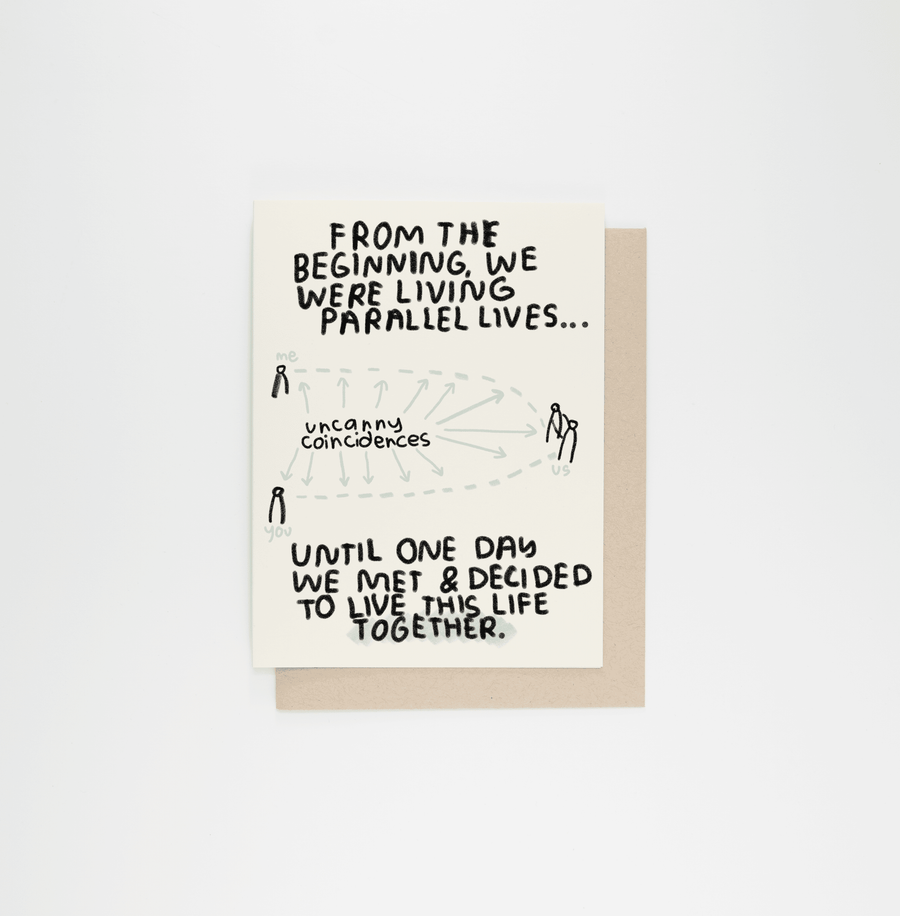 FROM THE
BEGINNING, WE
WERE LIVING
PARALLEL LIVES...
me
uncanny
coincidences
us
you
UNTIL ONE DAY
WE MET & DECIDED
TO LIVE THIS LIFE
TOGETHER.